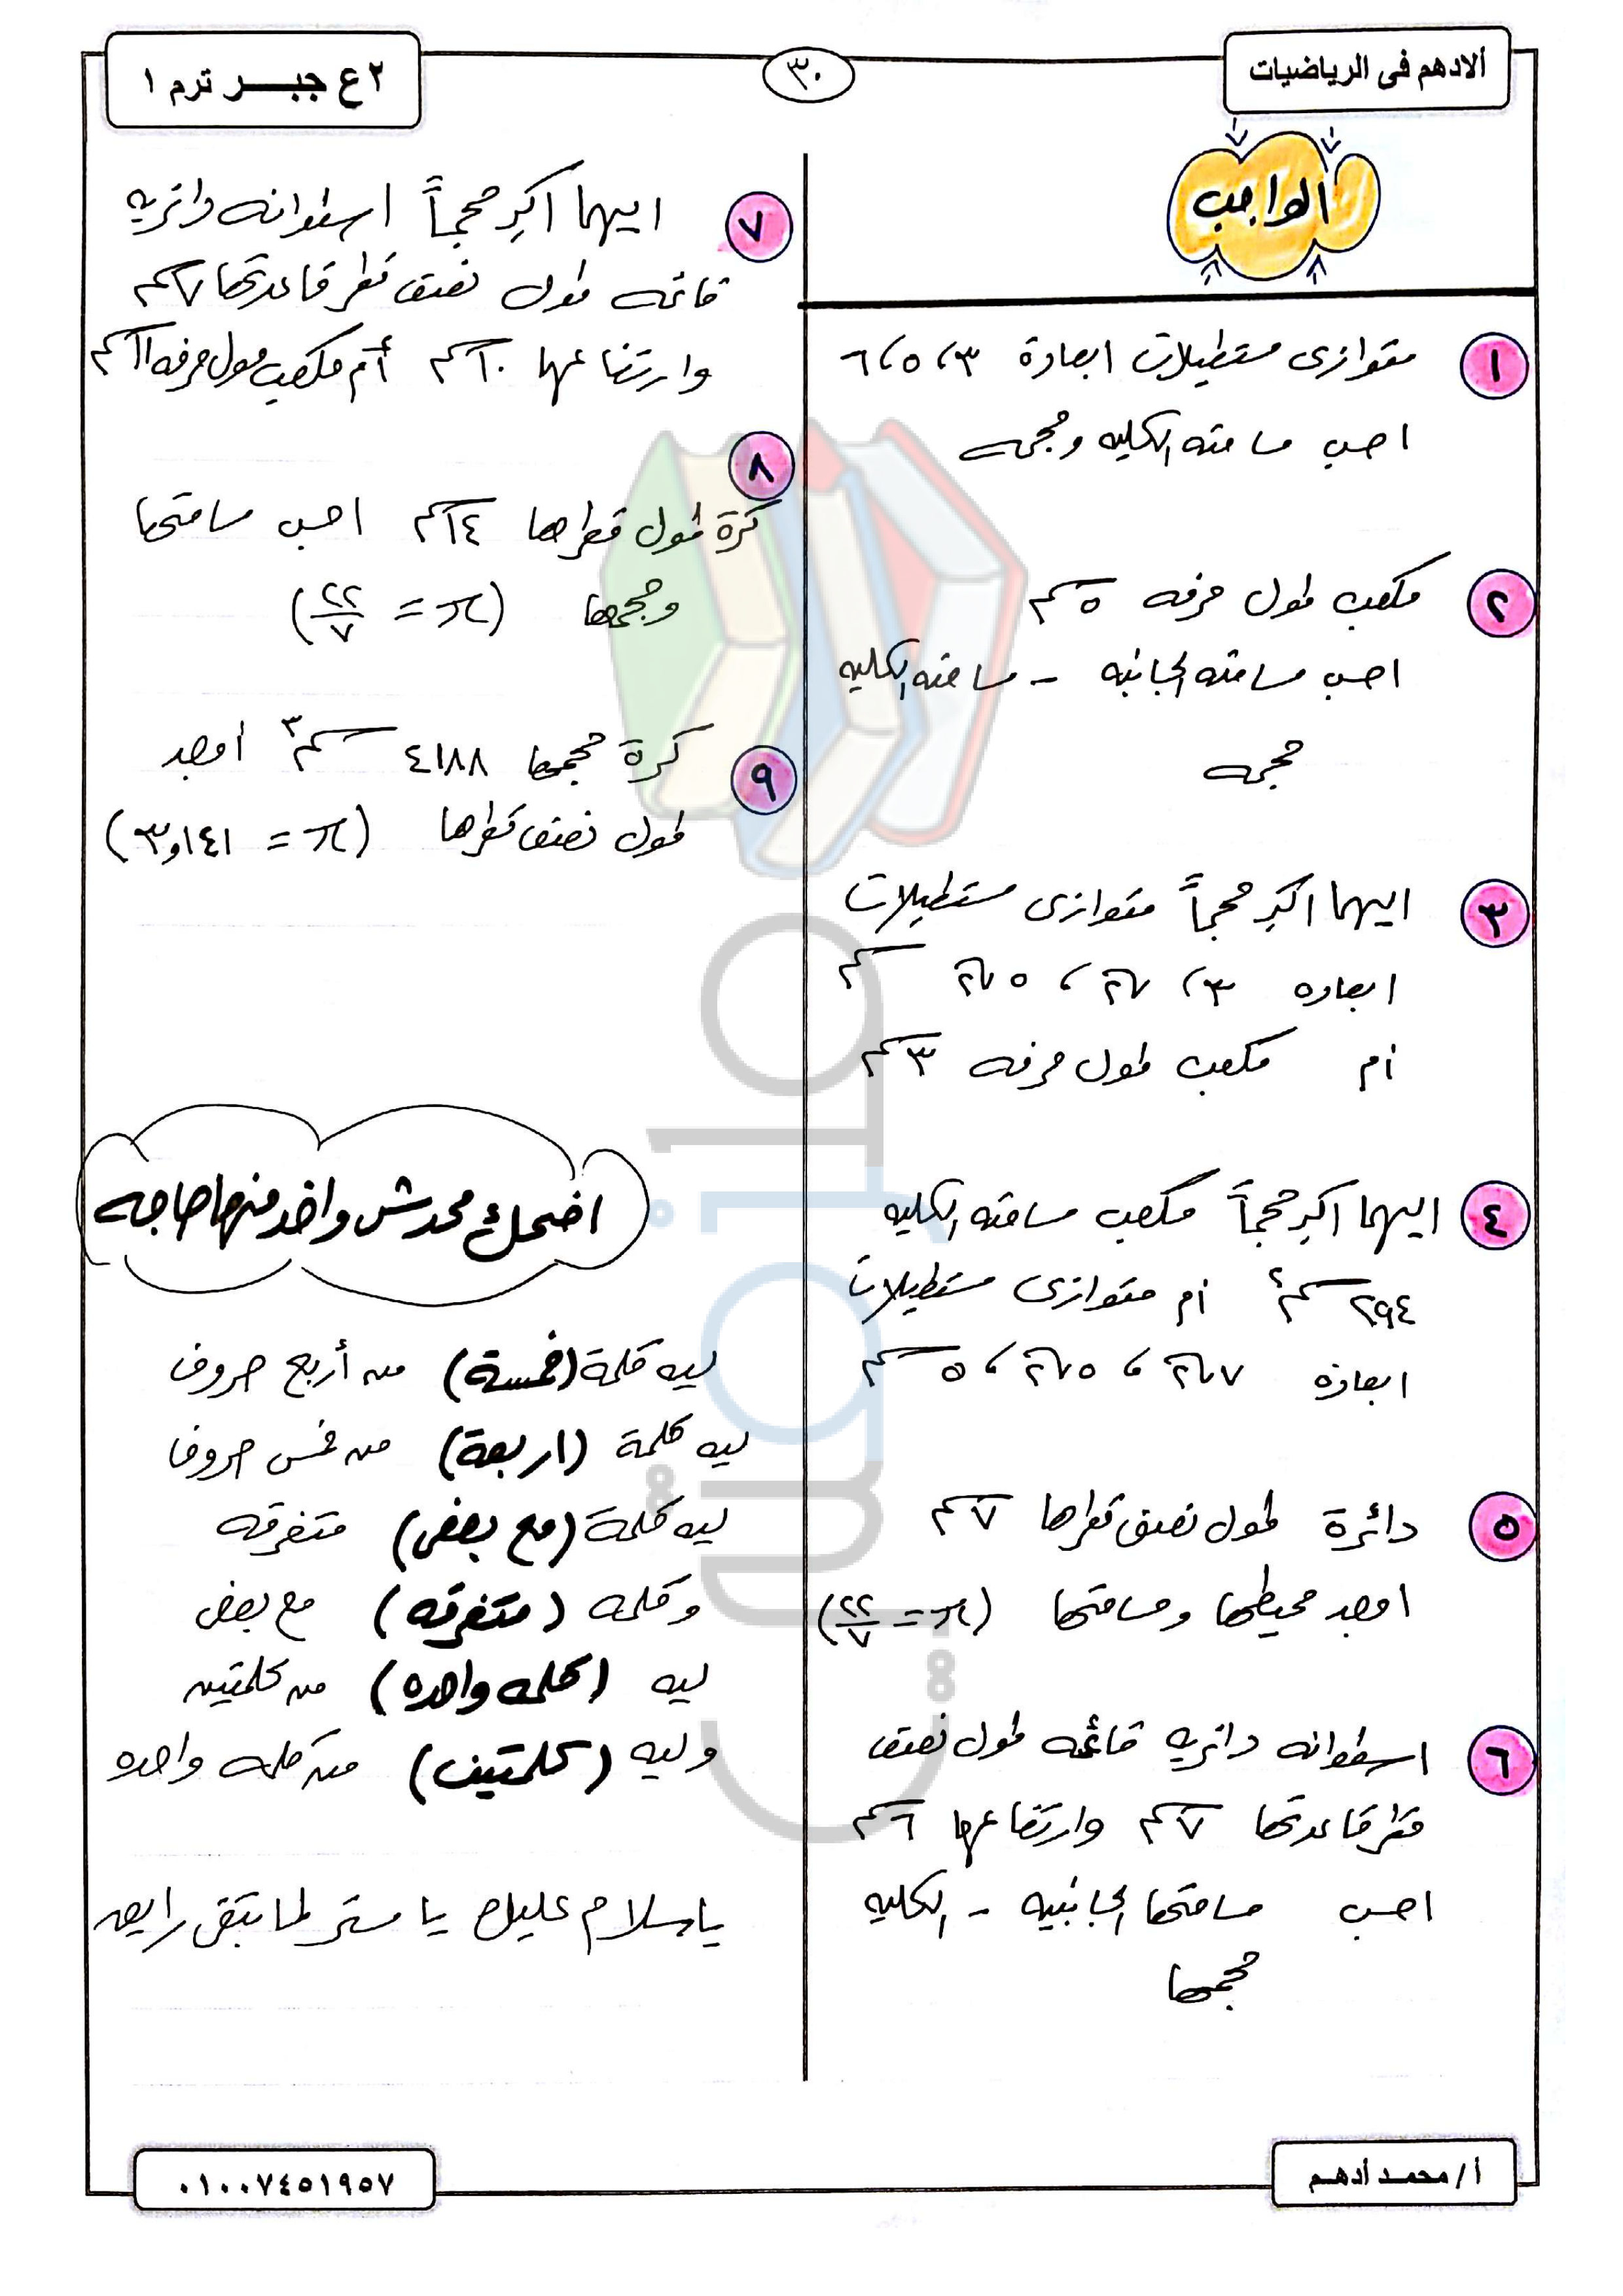 ألادهم فى الرياضيات
٣٠
٢ ع جبــــر ترم ١
الواجب
١ متوازى مستطيلات ابعادة ٣ ، ٥ ، ٦
احسب مساحته الكليه وحجمه
٢ مكعب طول حرفه ٥ سم
احسب مساحته الجانبيه - مساحته الكليه
حجمه
٣ ايهما اكبر حجماً متوازى مستطيلات
ابعاده ٣ ، √٢ ، ٥√٢ سم
ام مكعب طول حرفه ٣ سم
٤ ايهما اكبر حجماً مكعب مساحته الكليه
٢٩٤ سم٢ ام متوازى مستطيلات
ابعاده ٧√٢ ، ٥√٢ ، ٥ سم
٥ دائرة طول نصف قطرها ٧ سم
اوجد محيطها ومساحتها (π = ٢٢/٧)
٦ اسطوانه دائريه قائمه طول نصف
قطر قاعدتها ٧ سم وارتفاعها ٦ سم
احسب مساحتها الجانبيه - الكليه
حجمها
٧ ايهما اكبر حجماً اسطوانه دائريه
قائمه طول نصف قطر قاعدتها ٧ سم
وارتفاعها ١٠ سم أم مكعب طول حرفه ١١ سم
٨
كرة طول قطرها ١٤ سم احسب مساحتها
وحجمها (π = ٢٢/٧)
٩ كرة حجمها ٤١٨٨ سم٣ اوجد
طول نصف قطرها (π = ٣,١٤١)
اضحك محدش واخد منها حاجه
ليه كلمة (خمسة) من أربع حروف
ليه كلمة (اربعة) من خمس حروف
ليه كلمة (مع بعض) متفرقه
وكلمه (متفرقه) مع بعض
ليه (كلمه واحده) من كلمتين
وليه (كلمتين) من كلمه واحده
ياسلام عليك يا مستر لما بتبقى رايق
أ / محمـد أدهـم
٠١٠٠٧٤٥١٩٥٧